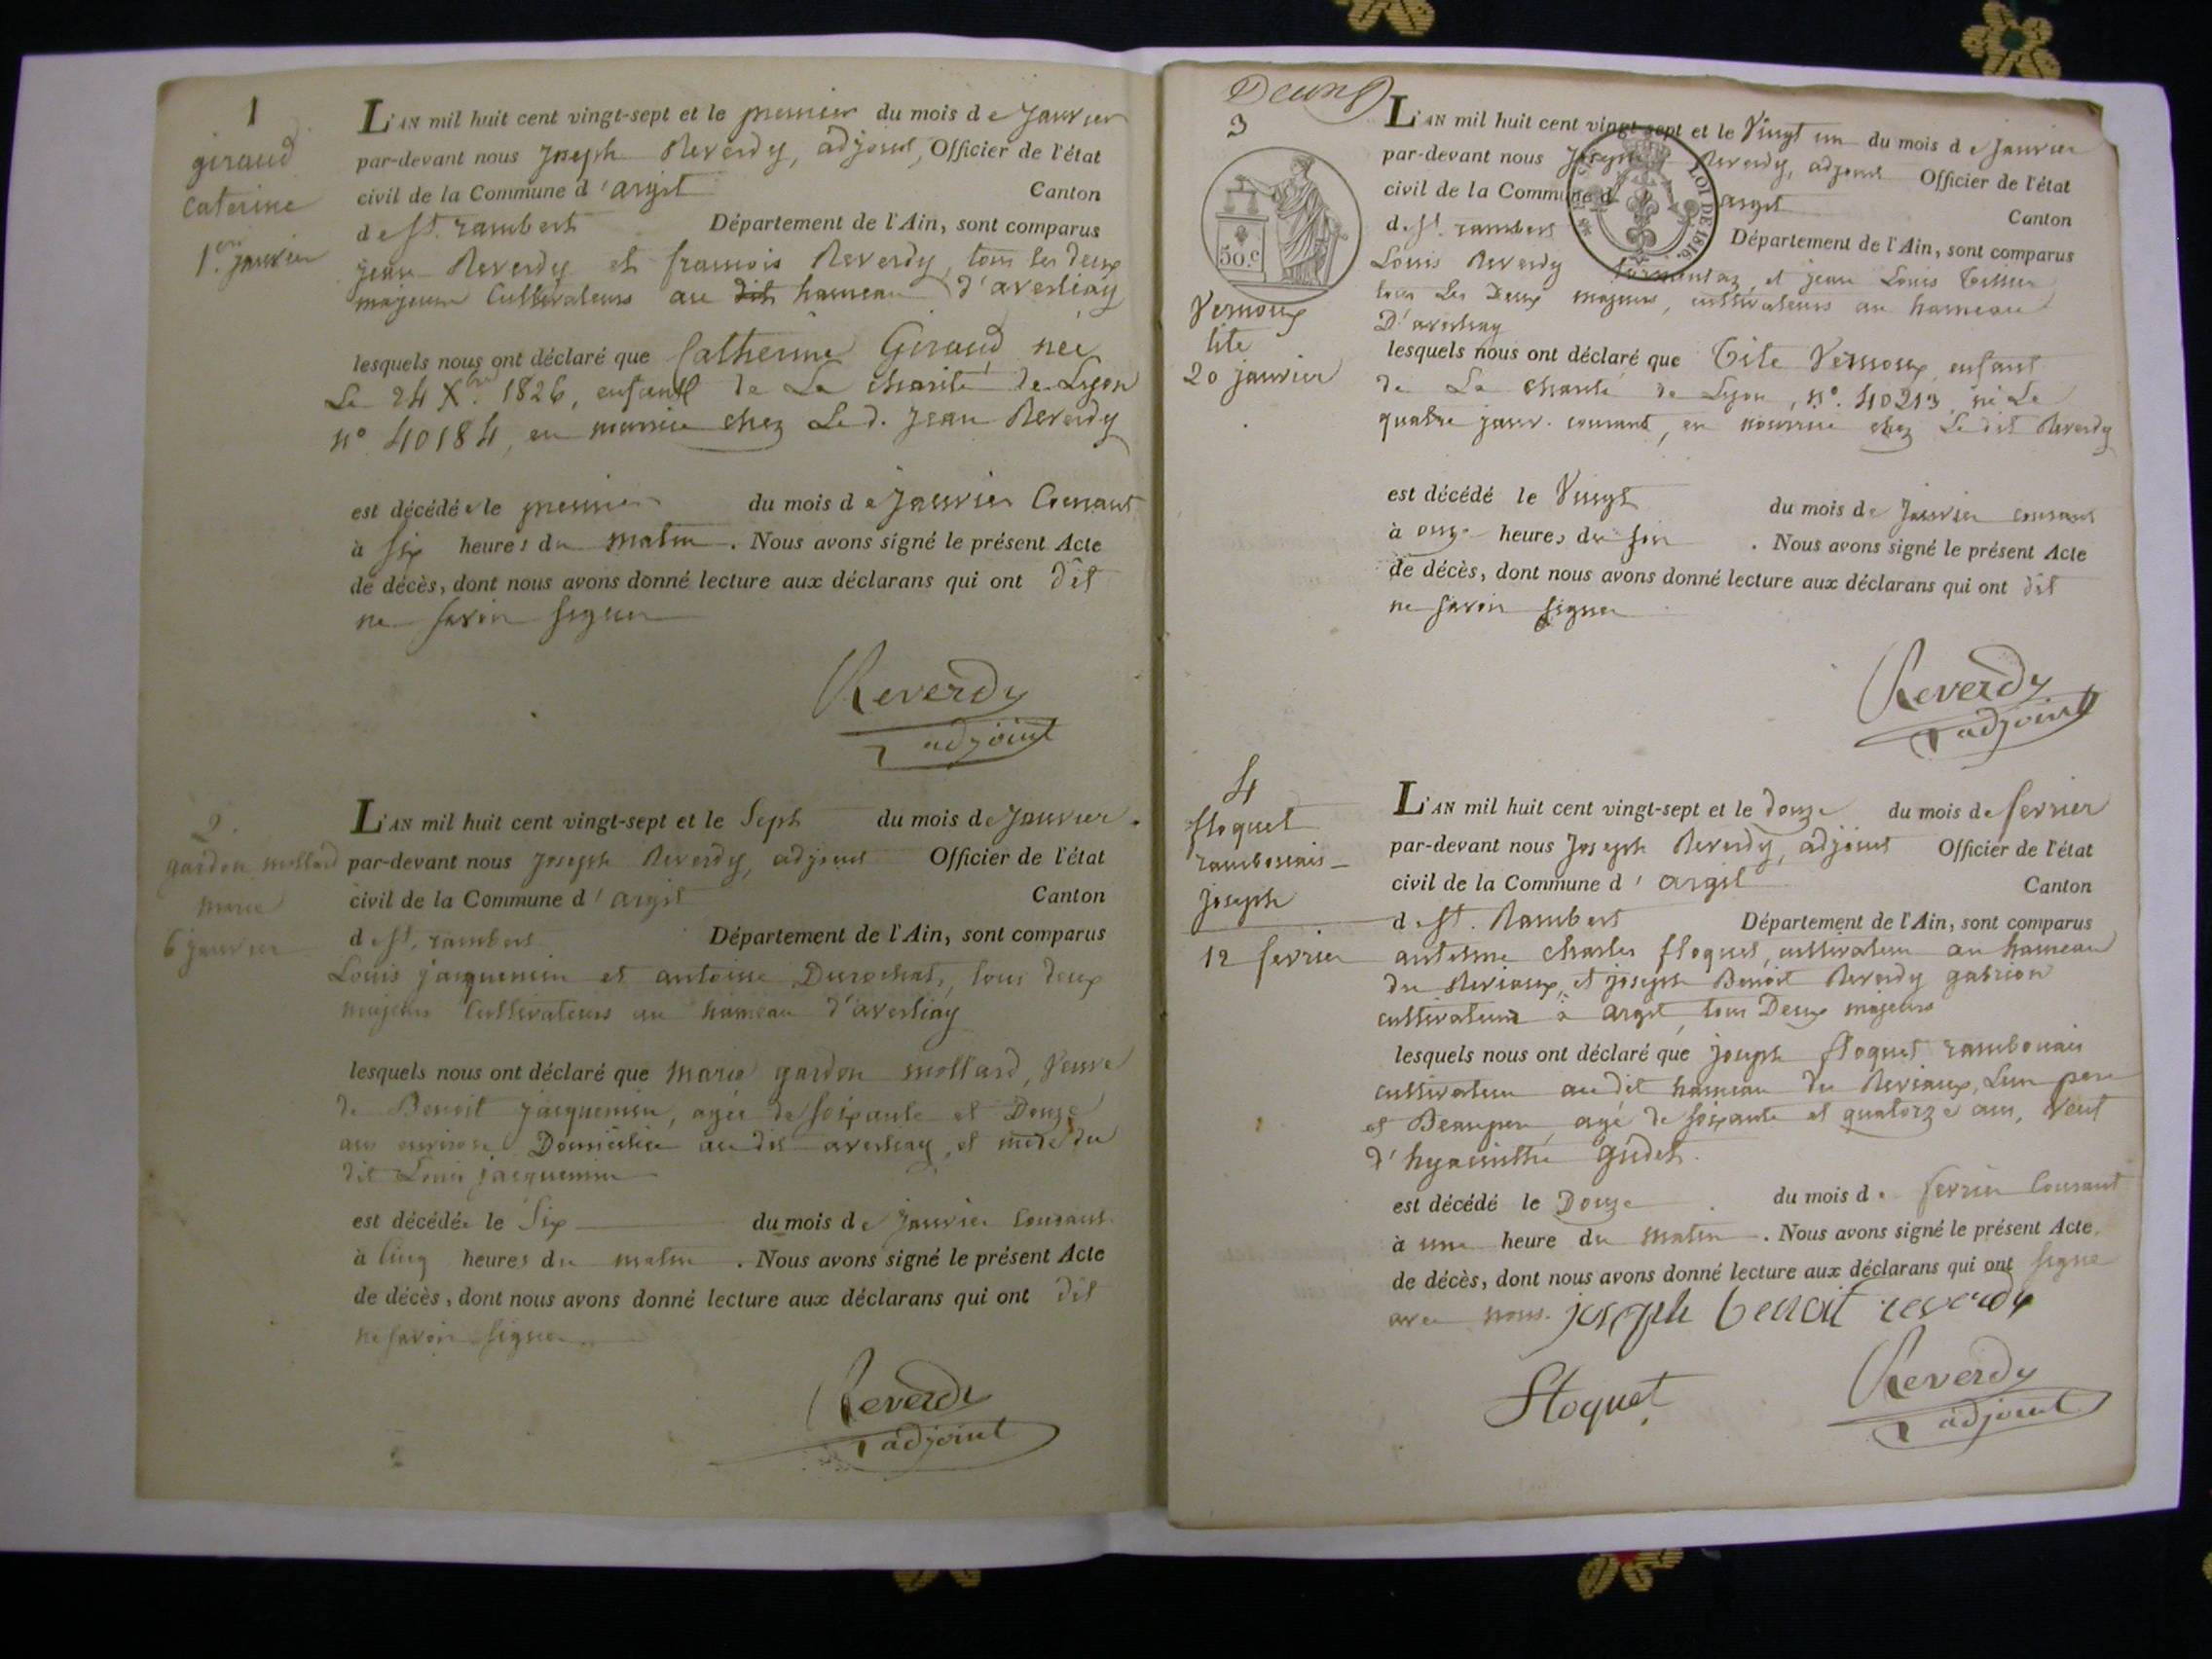 1
giraud
caterine
1.er janvier
L'AN mil huit cent vingt-sept et le premier du mois de Janvier
par-devant nous Joseph Reverdy, adjoint, Officier de l'état
civil de la Commune d'argit Canton
de St. rambert Département de l'Ain, sont comparus
jean Reverdy et francois Reverdy, tous les deux
majeurs Cultivateurs au dit hameau d'averliay
lesquels nous ont déclaré que Catherine Giraud, née
Le 24 X.bre 1826, enfant de La charité de Lyon
n° 40184, en nourrice chez Le d. Jean Reverdy
est décédée le premier du mois de Janvier Courant
à six heures du matin. Nous avons signé le présent Acte
de décès, dont nous avons donné lecture aux déclarans qui ont dit
ne savoir signer
Reverdy
adjoint
2.
gardon mollard
marie
6 janvier
L'AN mil huit cent vingt-sept et le Sept du mois de Janvier.
par-devant nous Joseph Reverdy, adjoint Officier de l'état
civil de la Commune d'argit Canton
de St. rambert Département de l'Ain, sont comparus
Louis jacquemin et antoine Durochat, tous deux
majeurs Cultivateurs au hameau d'averliay
lesquels nous ont déclaré que marie gardon mollard, Veuve
de Benoit jacquemin, agée de soixante et Douze
ans environ Domiciliée au dit averliay, et mere du
dit Louis jacquemin
est décédée le Six du mois de janvier courant
à Cinq heures du matin. Nous avons signé le présent Acte
de décès, dont nous avons donné lecture aux déclarans qui ont dit
ne savoir signer
Reverdy
adjoint
3
50.c
LOI DE 1816.
Vernoux
tite
20 janvier
L'AN mil huit cent vingt-sept et le Vingt un du mois de Janvier
par-devant nous Joseph Reverdy, adjoint Officier de l'état
civil de la Commune d'argit Canton
de St. rambert Département de l'Ain, sont comparus
Louis Reverdy et jean Louis Tissier
tous Les Deux majeurs, cultivateurs au hameau
D'averliay
lesquels nous ont déclaré que Tite Vernoux, enfant
de La charité de Lyon, n°. 40213, né Le
quatre janv. courant, en nourrice chez Le dit Reverdy
est décédé le Vingt du mois de Janvier courant
à onze heures du soir. Nous avons signé le présent Acte
de décès, dont nous avons donné lecture aux déclarans qui ont dit
ne savoir signer
Reverdy
adjoint
4
floquet
rambouais
joseph
12 fevrier
L'AN mil huit cent vingt-sept et le douze du mois de fevrier
par-devant nous Joseph Reverdy, adjoint Officier de l'état
civil de la Commune d'argit Canton
de St. Rambert Département de l'Ain, sont comparus
antelme charles floquet, cultivateur au hameau
du Reriaux, et joseph Benoit Reverdy gabrion
cultivateur à argit, tous Deux majeurs
lesquels nous ont déclaré que joseph floquet rambouais
cultivateur au dit hameau du Reriaux, Leur pere
et Beaupere, agé de soixante et quatorze ans, Veuf
d'hyacinthe gudet.
est décédé le Douze du mois de fevrier Courant
à une heure du matin. Nous avons signé le présent Acte
de décès, dont nous avons donné lecture aux déclarans qui ont signé
avec nous. joseph benoit reverdy
floquet
Reverdy
adjoint